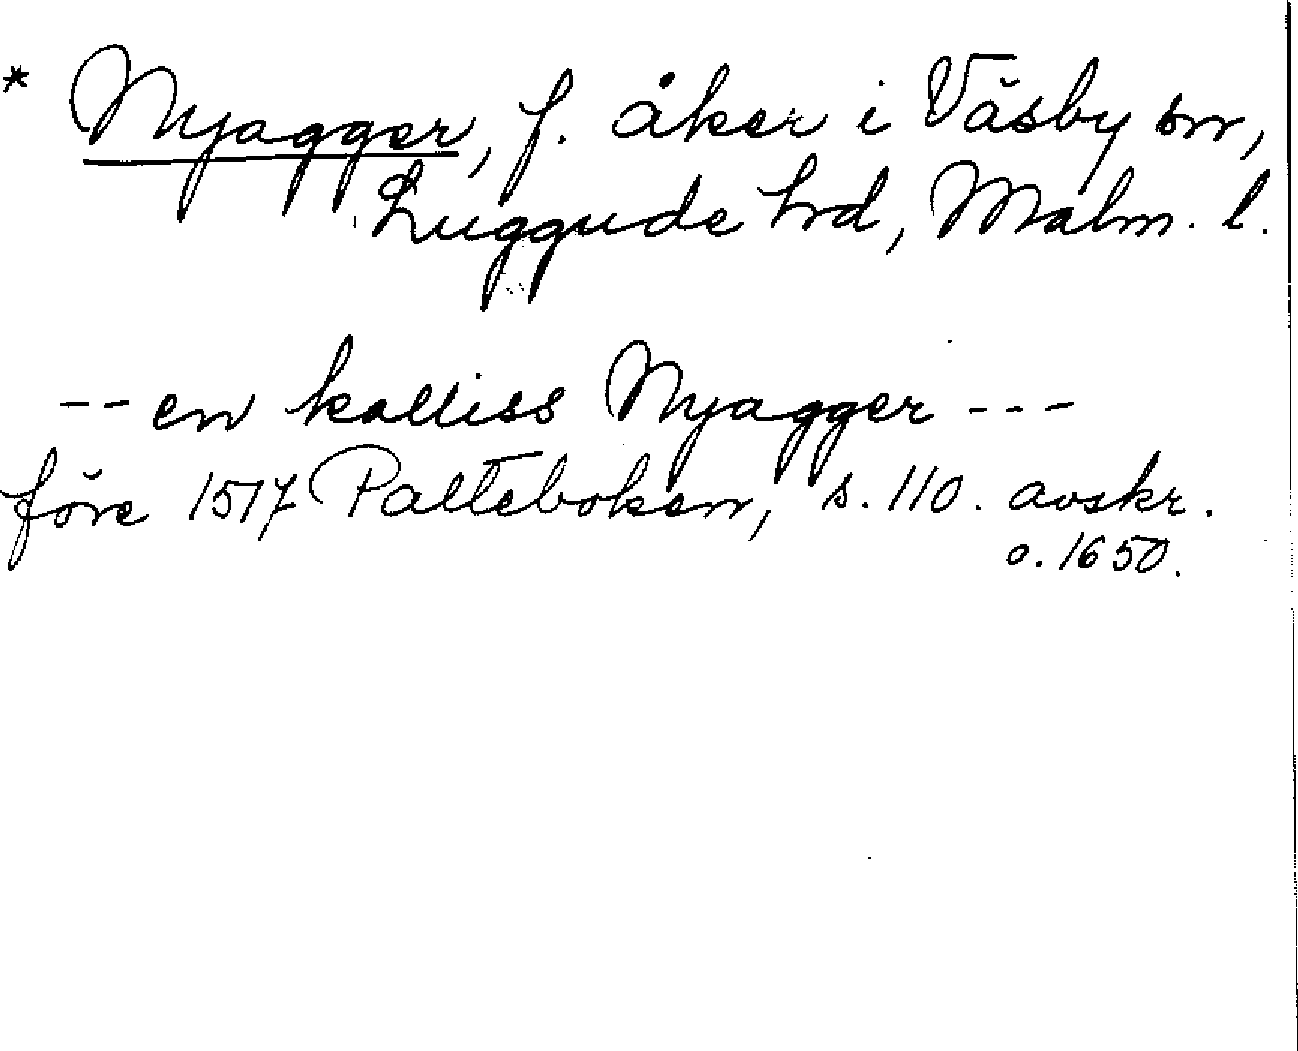 * Nyagger, f. åker i Väsby sn,
Luggude hrd, Malm. l.
-- en kalliss Nyagger ---
före 1517 Palteboken, s. 110. avskr.
o. 1650.